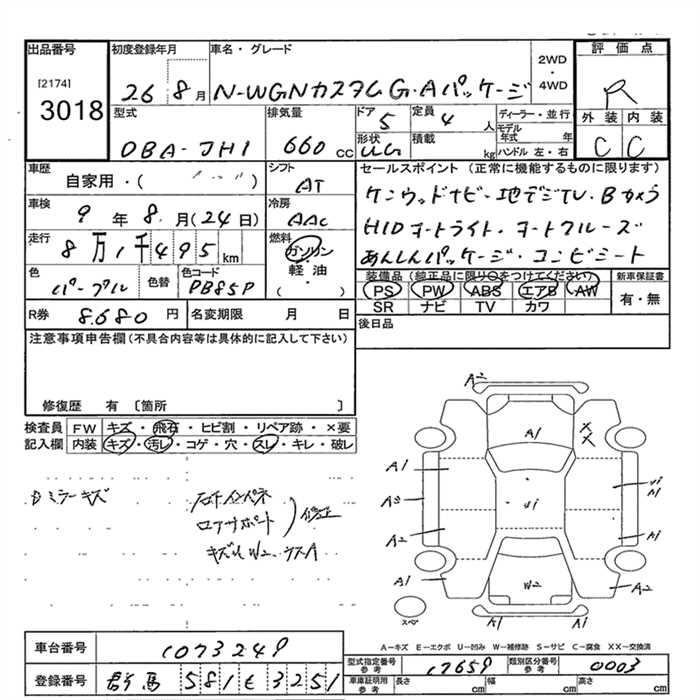 出品番号
[2174]
3018
初度登録年月
26 8月
車名・グレード
N-WGNカスタム G・Aパッケージ
2WD
・
4WD
評価点
R
外装 内装
C C
型式
DBA-JH1
排気量
660 cc
ドア
5
形状
定員
4 人
積載
kg
ディーラー・並行
モデル年式 年
ハンドル 左・右
車歴
自家用・( )
シフト
AT
車検
9年8月(24日)
冷房
AAC
走行
8万1千495km
燃料
ガソリン
・
軽油
( )
色
パープル
色替
色コード
PB85P
R券
8.680円
名変期限 月 日
セールスポイント(正常に機能するものに限ります)
ケンウッドナビ・地デジTV・Bカメラ
HIDオートライト・オートクルーズ
あんしんパッケージ・コンビシート
装備品(純正品に限り○をつけてください)
PS PW ABS エアB AW
SR ナビ TV カワ
新車保証書
有・無
後日品
注意事項申告欄(不具合内容等は具体的に記入して下さい)
修復歴 有 〔箇所 〕
検査員
記入欄
FW キズ・飛石・ヒビ割・リペア跡・×要
内装 キズ・汚レ・コゲ・穴・スレ・キレ・破レ
ミラーキズ
右インパネ
ロアサポート
修正
キズW2
A2
A1
X
X
A1
A2
A1
A2
A1
W2
A2
スペ
A1
A1
A-キズ E-エクボ U-凹み W-補修跡 S-サビ C-腐食 XX-交換済
車台番号
1073249
登録番号
群馬 581 そ 3251
型式指定番号
参考
17659
類別区分番号
参考
0003
車庫証明用
参考
長さ cm
幅 cm
高さ cm